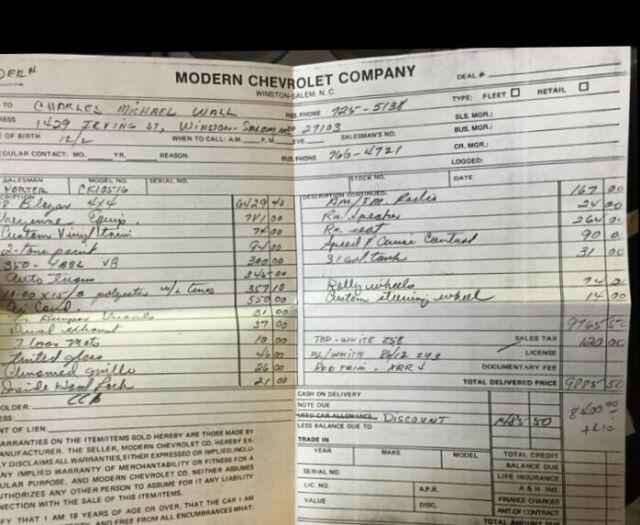 DER #
MODERN CHEVROLET COMPANY
WINSTON-SALEM, N. C.
DEAL #
TO CHARLES MICHAEL WALL
RES. PHONE 725-5138
TYPE: FLEET RETAIL
RESS 1429 IRVING ST, WINSTON-SALEM 27103
SLS. MGR.:
E OF BIRTH 12/2 WHEN TO CALL: A.M. P.M. EVE. SALESMAN'S NO.
BUS. MGR.:
EGULAR CONTACT: MO. YR. REASON:
BUS. PHONE 766-4721
CR. MGR.:
LOGGED:
SALESMAN MODEL NO. SERIAL NO.
PORTER CK10516
STOCK NO. DATE
CRIPTION
8 Blazer 4x4 6429 45
Cheyenne Equip. 781 00
Custom Vinyl trim 74 00
2-tone paint
350-4BBL V8 300 00
Auto trans 345 00
10.00 x 15/B polyester w/L tires 357 10
Air Cond. 550 00
Bumper Guards 31 00
Dual exhaust 37 00
Floor Mats 10 00
Tinted glass 46 00
Chromed grille 26 00
Inside Hood Lock 21 00
DESCRIPTION CONTINUED:
Am/Fm Radio 167 00
Rr. speaker 24 00
Rr. seat 264 00
Speed & Cruise Control 90 00
31 Gal tank 31 00
Rally wheels
Custom steering wheel 14 00
9765 50
TOP-WHITE 258 SALES TAX 120 00
LICENSE
RED TRIM - DOCUMENTARY FEE
TOTAL DELIVERED PRICE 9885 50
HOLDER:
CASH ON DELIVERY
NOTE DUE
USED CAR ALLOWANCE DISCOUNT 1485 50
8400 00
LESS BALANCE DUE TO
+ LIC
ESS:
NT OF LIEN:
TRADE IN
YEAR MAKE MODEL
SERIAL NO.
LIC. NO. A.P.R.
VALUE DISC.
TOTAL CREDIT
BALANCE DUE
LIFE INSURANCE
A & H INS.
FINANCE CHARGES
AMT. OF CONTRACT
TOTAL AMOUNT DUE
ARRANTIES ON THE ITEM/ITEMS SOLD HEREBY ARE THOSE MADE BY
MANUFACTURER. THE SELLER, MODERN CHEVROLET CO. HEREBY EX-
LY DISCLAIMS ALL WARRANTIES, EITHER EXPRESSED OR IMPLIED, INCLU-
ANY IMPLIED WARRANTY OF MERCHANTABILITY OR FITNESS FOR A
ULAR PURPOSE, AND MODERN CHEVROLET CO. NEITHER ASSUMES
UTHORIZES ANY OTHER PERSON TO ASSUME FOR IT ANY LIABILITY
NNECTION WITH THE SALE OF THIS ITEM/ITEMS.
FY THAT I AM 18 YEARS OF AGE OR OVER, THAT THE CAR I AM
AND FREE FROM ALL ENCUMBRANCES WHAT-